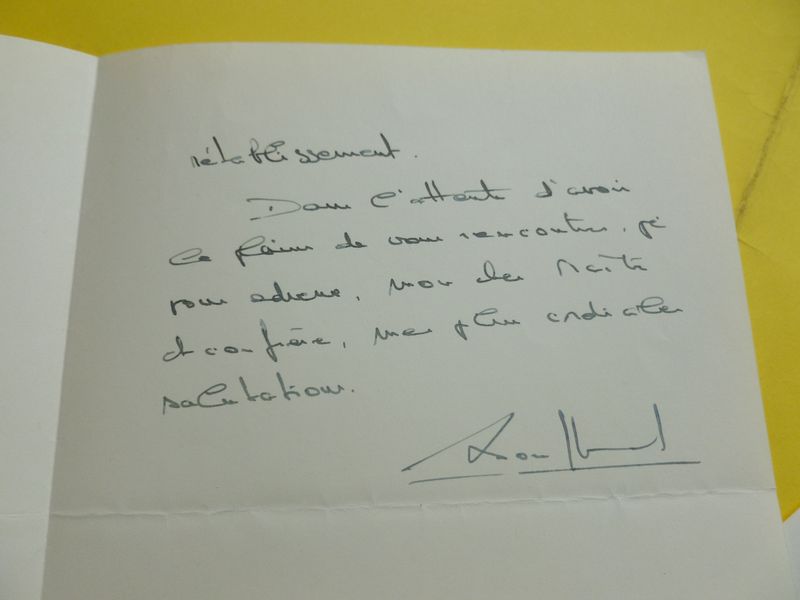 rétablissement.
Dans l'attente d'avoir
le plaisir de vous rencontrer, je
vous adresse, mon cher Maître
et confrère, mes plus cordiales
salutations.